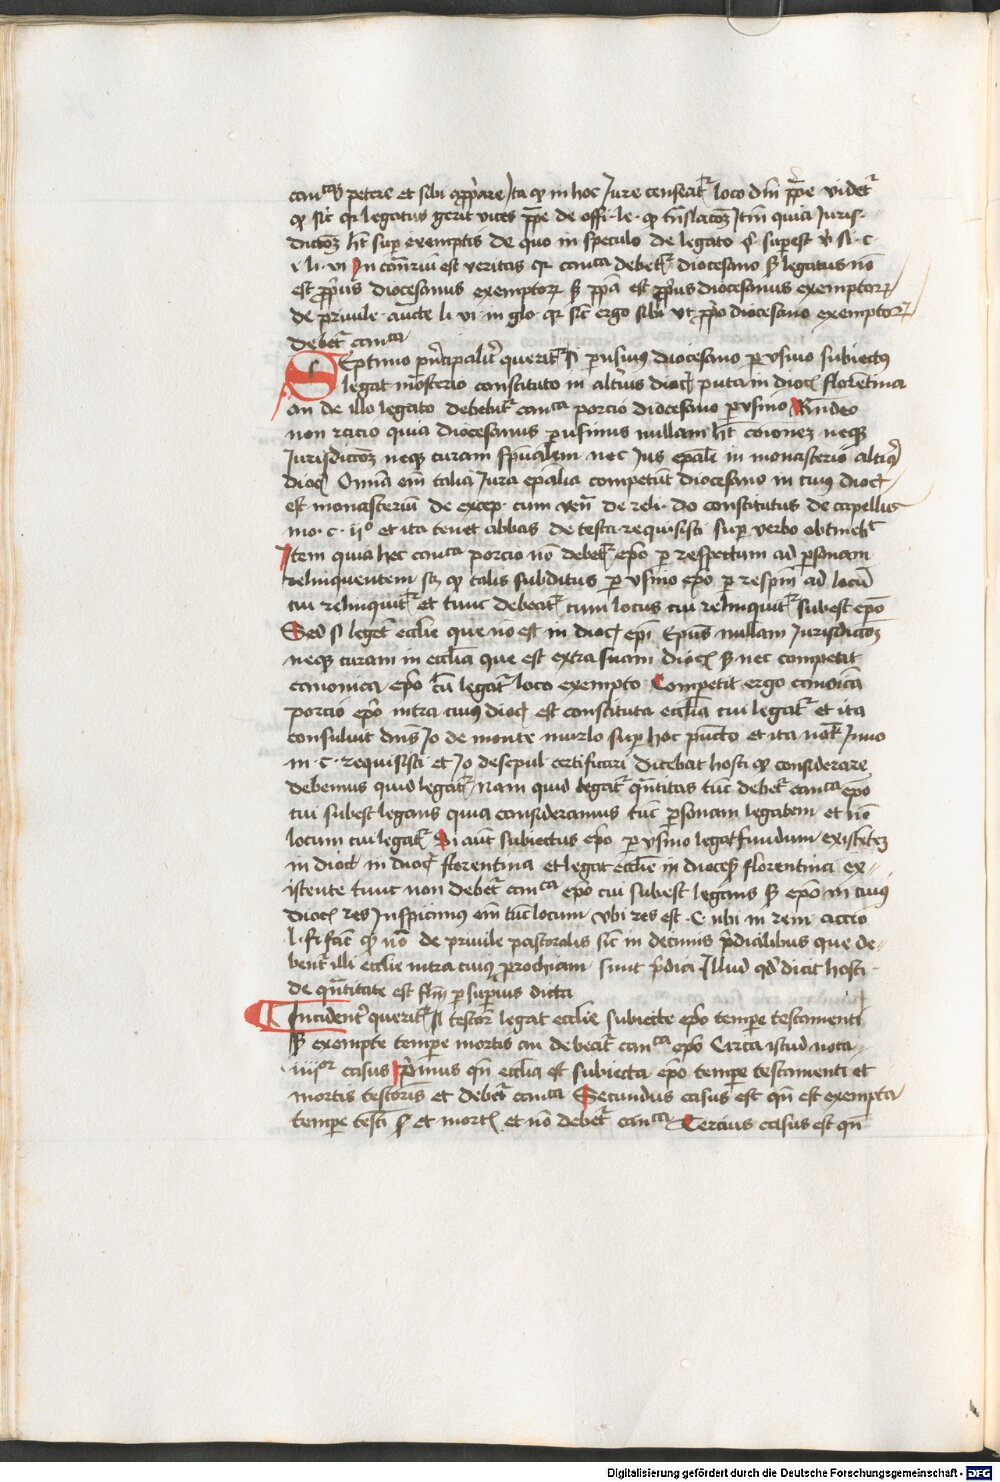 can<sup>ca</sup> petere et sibi apropare Ita qd in hoc Jure censeat<sup>r</sup> loco dni ppe videt<sup>r</sup>
qd sic qr legatus gerit vices ppe de offi · le · qd tnslacoz Itm quia Juris-
dictioz ht sup exemptis de quo in speculo de legato § superest v si · c ·
li · vi In contriu est veritas qr can<sup>ca</sup> debet<sup>r</sup> diocesano s legatus no
est pprius diocesanus exemptor s ppa est pprius diocesanus exemptor
de privile · aucte li vi in glo · qr sic ergo sibi vt pprio diocesano exemptor
debet<sup>r</sup> can<sup>ca</sup>
SEptimo principalit querit<sup>r</sup> si perusinus diocesano perusino subiectus
legat monsterio constituto in alterius dioc puta in dioc florentina
an de illo legato debebit<sup>r</sup> can<sup>ca</sup> porcio diocesano perusino Rndeo
non recicio quia diocesanus perusinus nullam ht coionez neque
Jurisdictoz neque curam spualem nec Jus epale in monasterio alterius
dioc Omnia em talia Jura epalia competunt diocesano in cuius dioc
est monasteriu de excep · cum ven de reli · do constitutus de capellis
mo · c · ii<sup>o</sup> et ita tenet abbas de testa · requisisti sup verbo obtineb<sup>t</sup>
Item quia hec can<sup>ca</sup> porcio no debet<sup>r</sup> epo per respectum ad personam
relinquentem scz qd talis subditus perusino epo per respm ad locu
cui relinquit<sup>r</sup> et tunc debeat<sup>r</sup> cum locus cui relinquit<sup>r</sup> subest epo
Sed si leget ecclie que no est in dioc epi Epus nullam Jurisdictoz
neque curam in ecclia que est extra suam dioc s nec competit
canonica epo cu legat<sup>r</sup> loco exempto Competit ergo canoica
porcio epo intra cuius dioc est constituta ecclia cui legat<sup>r</sup> et ita
consuluit dns Jo de monte murlo sup hoc puncto et ita not<sup>r</sup> Inno
in · c · requisisti et Jo de sepul · certificari Dicebat hosti qd considerare
debemus quid legat<sup>r</sup> Nam quid legat<sup>r</sup> quantitas tuc debet<sup>r</sup> can<sup>ca</sup> epo
cui subest legans quia consideramus tuc personam legatem et no
locum cui legat<sup>r</sup> Si aut subiectus epo perusino legat fundum existetez
in dioc in dioc florentina et legat ecclie in diocesi florentina ex-
istente tunc non debet<sup>r</sup> can<sup>ca</sup> epo cui subest legans s epo in cuius
dioc res Inspicimus em tuc locum vbi res est · C · ubi in rem actio
l · fi fac qd no de privile pastoralis sic in decimis predialibus que de-
bent<sup>r</sup> illi ecclie intra cuius prochiam sunt predia Illud qd dicit hosti ·
de quantitate est flm per superius dicta
Incident querit<sup>r</sup> si testor legat ecclie subiecte epo tempe testamenti
s exempte tempe mortis an debeat<sup>r</sup> can<sup>ca</sup> epo Circa istud nota
iiii<sup>or</sup> casus Primus qn ecclia est subiecta epo tempe testamenti et
mortis testoris et debet<sup>r</sup> can<sup>ca</sup> Secundus casus est qn est exempta
tempe testi et mortis et no debet<sup>r</sup> can<sup>ca</sup> Tercius casus est qn
Digitalisierung gefördert durch die Deutsche Forschungsgemeinschaft - DFG